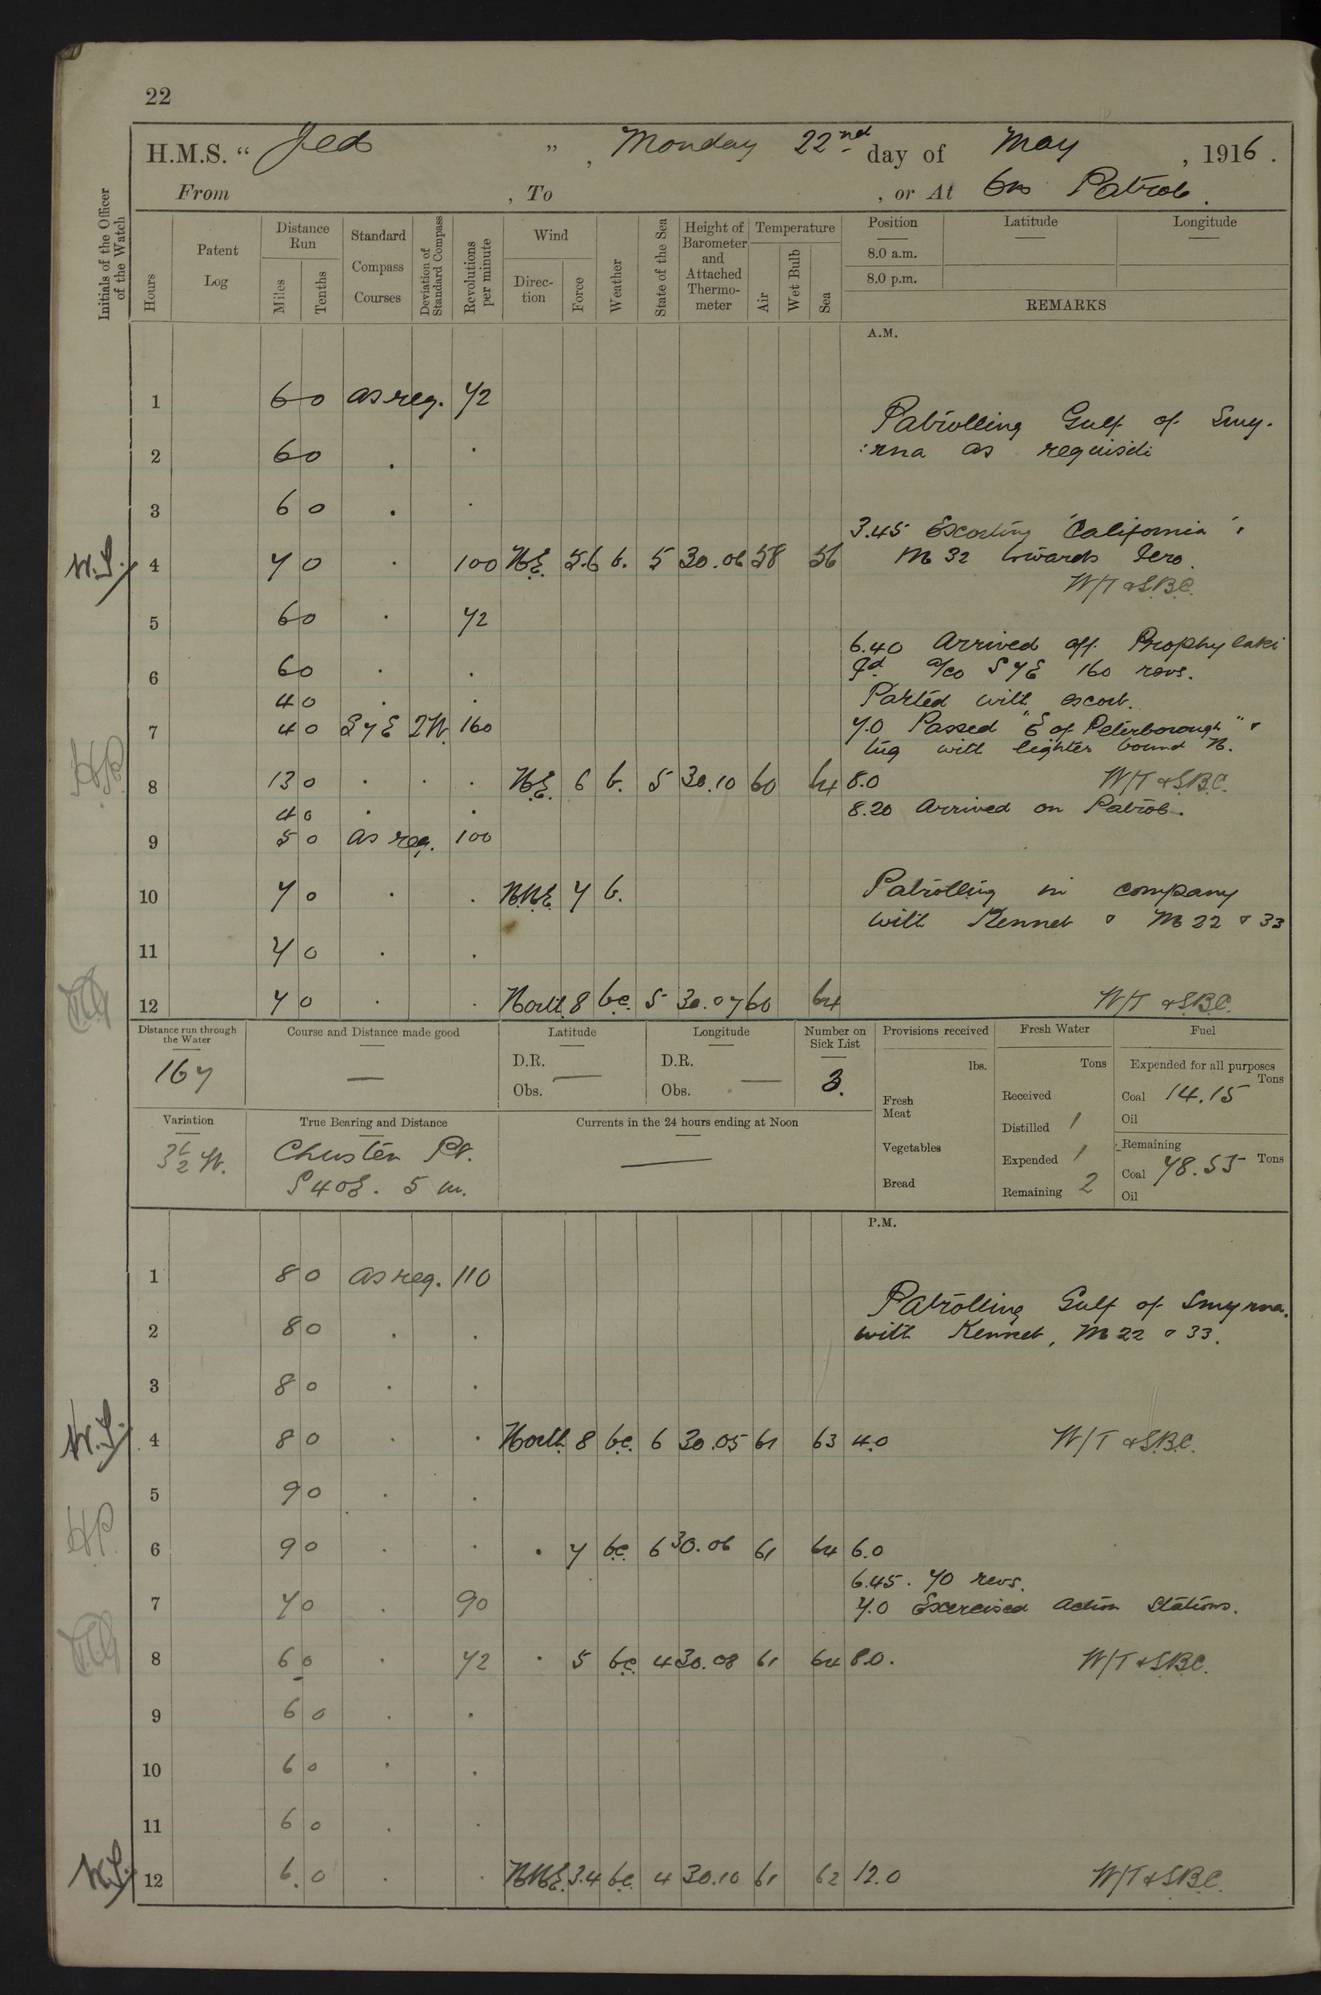 22
H.M.S. “ Jed ” , Monday 22nd day of May , 1916 .
From , To , or At On Patrol .
Initials of the Officer of the Watch
Hours
Patent Log
Distance Run
Miles
Tenths
Standard Compass Courses
Deviation of Standard Compass
Revolutions per minute
Wind
Direc-tion
Force
Weather
State of the Sea
Height of Barometer and Attached Thermo-meter
Temperature
Air
Wet Bulb
Sea
Position Latitude Longitude
8.0 a.m.
8.0 p.m.
REMARKS
A.M.
1 6 0 as req. 72
Patrolling Gulf of Smy-
2 6 0 . .
:rna as requisite
3 6 0 . .
3.45 Escorting "California" &
W.S. 4 7 0 . 100 N.E. 5.6 b. 5 30.06 58 56 M 32 towards Iero.
W/T & S.B.C.
5 6 0 . 72
6.40 Arrived off Prophylaki
6 6 0 . .
Id. a/co S 7 E 160 revs.
4 0 . .
Parted with escort.
7 4 0 S 7 E 2W. 160
7.0 Passed "E of Peterborough" &
tug with lighter bound N.
H.P. 8 13 0 . . . N.E. 6 b. 5 30.10 60 64 8.0 W/T & S.B.C.
4 0 . .
8.20 Arrived on Patrol.
9 5 0 as req. 100
10 7 0 . . N.N.E. 7 b. Patrolling in company
with Kennet & M 22 & 33
11 7 0 . .
12 7 0 . . North 8 b.c. 5 30.07 60 64 W/T & S.B.C.
Distance run through the Water
167
Course and Distance made good
—
Latitude
D.R.
Obs. —
Longitude
D.R.
Obs. —
Number on Sick List
3.
Provisions received
lbs.
Fresh Meat
Vegetables
Bread
Fresh Water
Tons
Received
Distilled 1
Expended 1
Remaining 2
Fuel
Expended for all purposes
Tons
Coal 14.15
Oil
Remaining
Coal 78.55 Tons
Oil
Variation
3½ W.
True Bearing and Distance
Chusten Pt.
S 40 E. 5 m.
Currents in the 24 hours ending at Noon
—
P.M.
1 8 0 as req. 110
Patrolling Gulf of Smyrna.
2 8 0 . . with Kennet, M 22 & 33.
3 8 0 . .
W.S. 4 8 0 . . North 8 b.c. 6 30.05 61 63 4.0 W/T & S.B.C.
5 9 0 . .
H.P. 6 9 0 . . . 7 b.c. 6 30.06 61 64 6.0
6.45. 70 revs.
7 7 0 . 90 7.0 Exercised Action Stations.
8 6 0 . 72 . 5 b.c. 4 30.08 61 64 8.0. W/T & S.B.C.
9 6 0 . .
10 6 0 . .
11 6 0 . .
W.S. 12 6. 0 . . N.N.E. 3.4 b.c. 4 30.10 61 62 12.0 W/T & S.B.C.